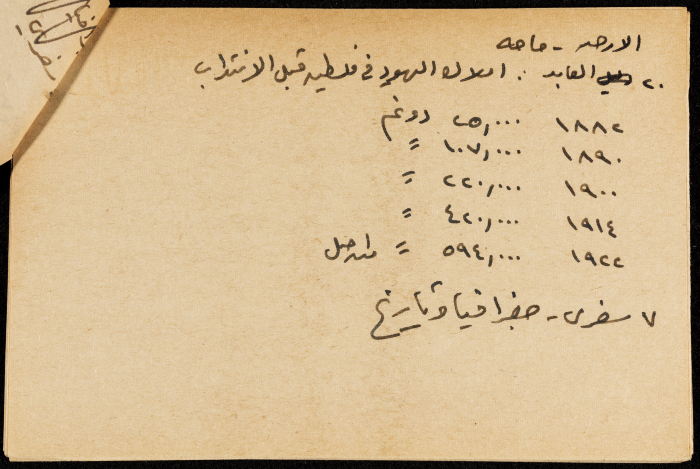 الارض - عامه
٢٠ العابد : املاك اليهود في فلسطين قبل الانتداب
١٨٨٢ ٢٥,٠٠٠ دونم
١٨٩٠ ١٠٧,٠٠٠ =
١٩٠٠ ٢٢٠,٠٠٠ =
١٩١٤ ٤٢٠,٠٠٠ =
١٩٢٢ ٥٩٤,٠٠٠ =
٧ سفري - جغرافيا وتاريخ